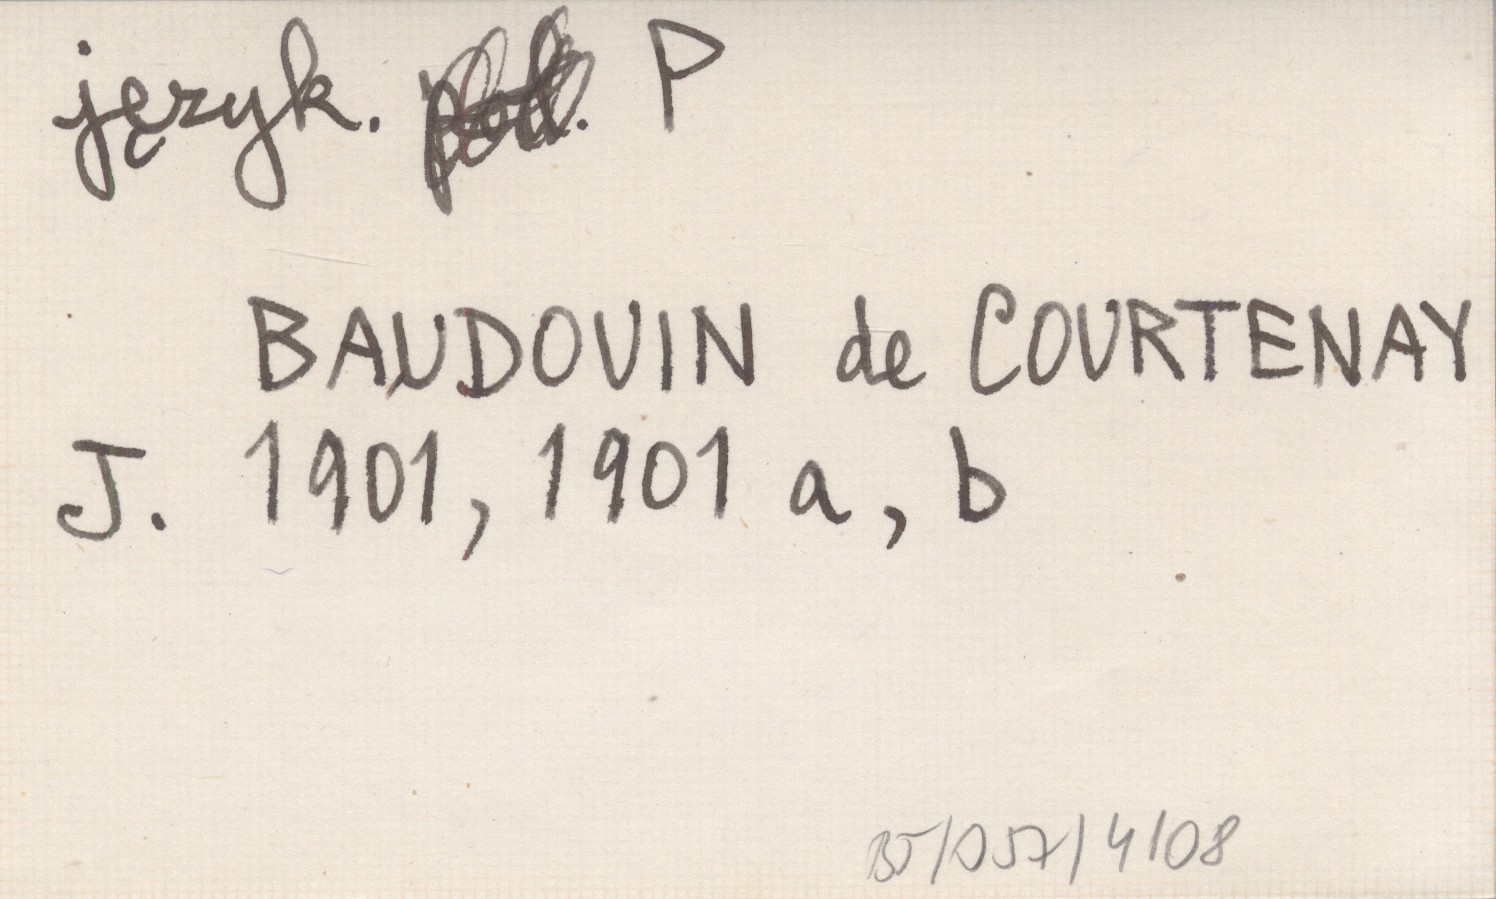 język. P
BAUDOUIN de COURTENAY
J. 1901, 1901 a, b
BJ/057/4/08